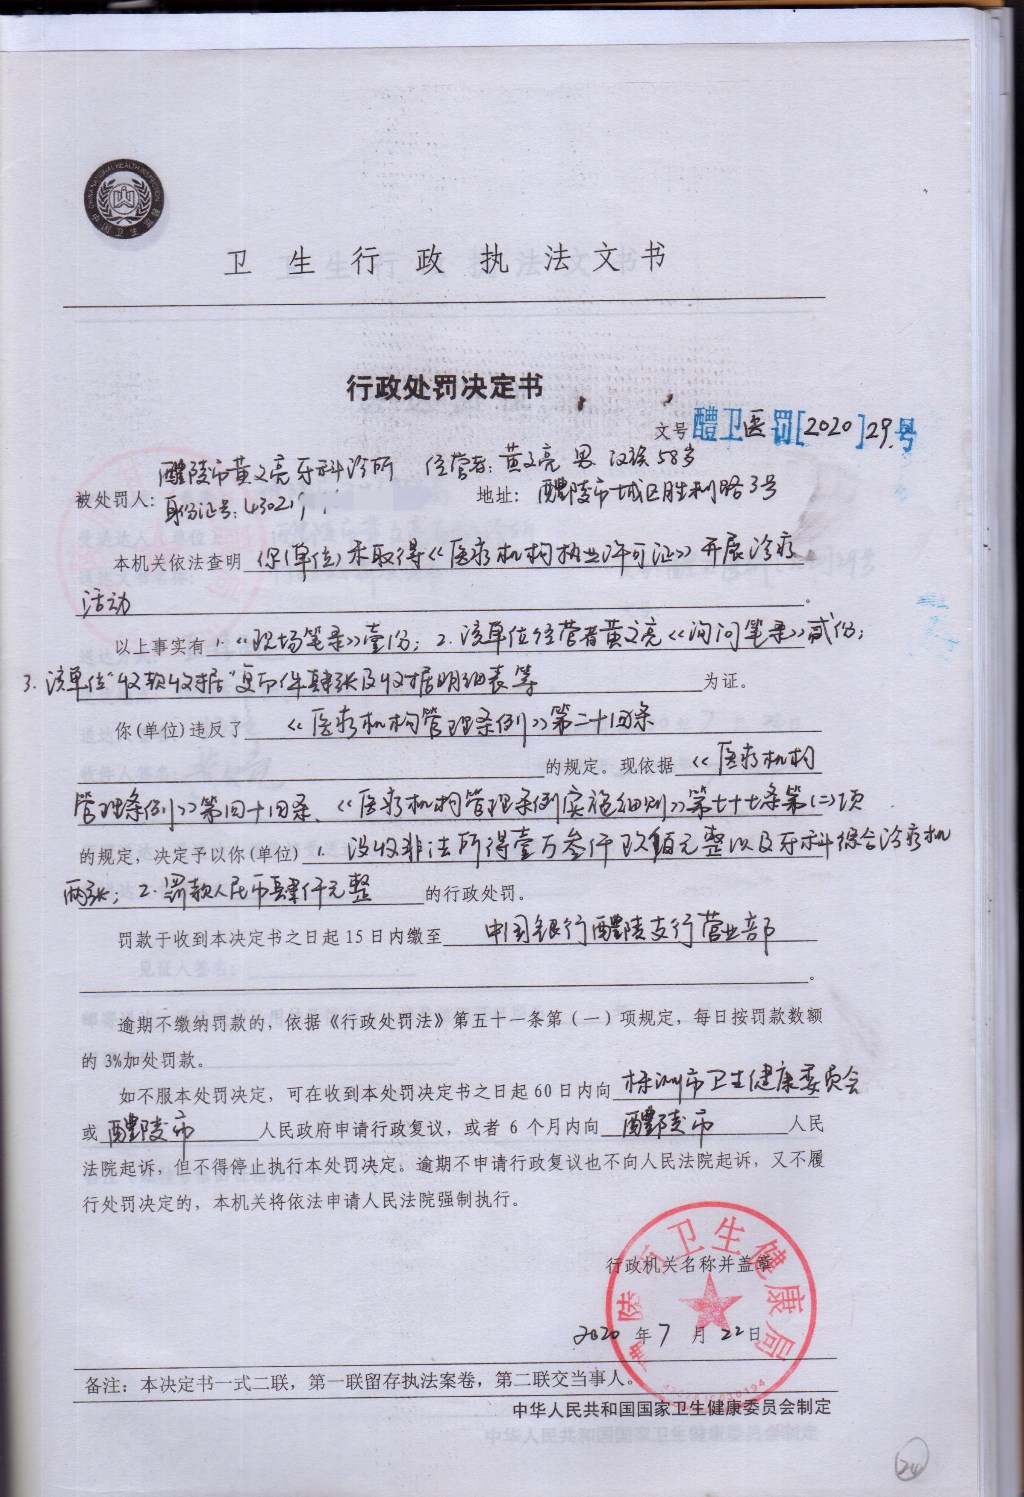 CHINA NATIONAL HEALTH INSPECTION
中国卫生监督
卫生行政执法文书
行政处罚决定书
文号 醴卫医罚[2020]29号
醴陵市黄文亮牙科诊所 经营者:黄文亮 男 汉族 58岁
被处罚人: 身份证号:43021 地址: 醴陵市城区胜利路3号
本机关依法查明 你(单位)未取得《医疗机构执业许可证》开展诊疗
活动。
以上事实有 1.《现场笔录》壹份; 2.该单位经营者黄文亮《询问笔录》贰份;
3.该单位"收款收据"复印件肆张及收据明细表等 为证。
你(单位)违反了 《医疗机构管理条例》第二十四条
的规定。现依据 《医疗机构
管理条例》第四十四条、《医疗机构管理条例实施细则》第七十七条第(二)项
的规定,决定予以你(单位) 1. 没收非法所得壹万叁仟玖佰元整以及牙科综合诊疗机
两张; 2. 罚款人民币肆仟元整 的行政处罚。
罚款于收到本决定书之日起 15 日内缴至 中国银行醴陵支行营业部
。
逾期不缴纳罚款的,依据《行政处罚法》第五十一条第(一)项规定,每日按罚款数额
的 3%加处罚款。
如不服本处罚决定,可在收到本处罚决定书之日起 60 日内向 株洲市卫生健康委员会
或 醴陵市 人民政府申请行政复议,或者 6 个月内向 醴陵市 人民
法院起诉,但不得停止执行本处罚决定。逾期不申请行政复议也不向人民法院起诉,又不履
行处罚决定的,本机关将依法申请人民法院强制执行。
醴陵市卫生健康局
行政机关名称并盖章
2020 年 7 月 22 日
备注:本决定书一式二联,第一联留存执法案卷,第二联交当事人。
中华人民共和国国家卫生健康委员会制定
24